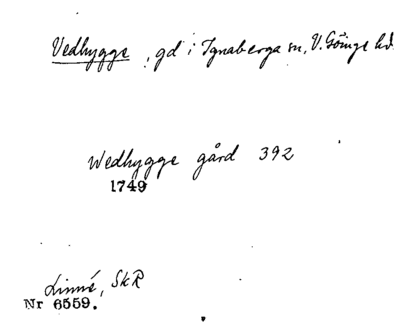 Vedhygge, gd i Ignaberga sn, V. Göinge hd.
Wedhygge gård 392
1749
Linné, SkR
Nr 6559.